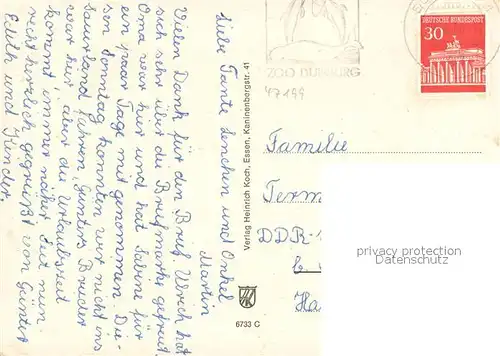 Liebe Tante Lenchen und Onkel
Martin
Vielen Dank für den Brief. Ulrich hat
sich sehr über die Briefmarke gefreut.
Oma war hier und hat Sabine für
ein paar Tage mit genommen. Die-
sen Sonntag konnten wir nicht ins
Sauerland fahren, Günters Bruder
war hier, aber die Urlaubszeit
kommt immer näher. Seit nun
recht herzlich gegrüßt von Günter
Edith und Kinder.
Verlag Heinrich Koch, Essen, Kaninenbergstr. 41
6733 C
ZOO DUISBURG
47199
DEUTSCHE BUNDESPOST
30
Familie
Term
DDR-
Ha
privacy protection
Datenschutz